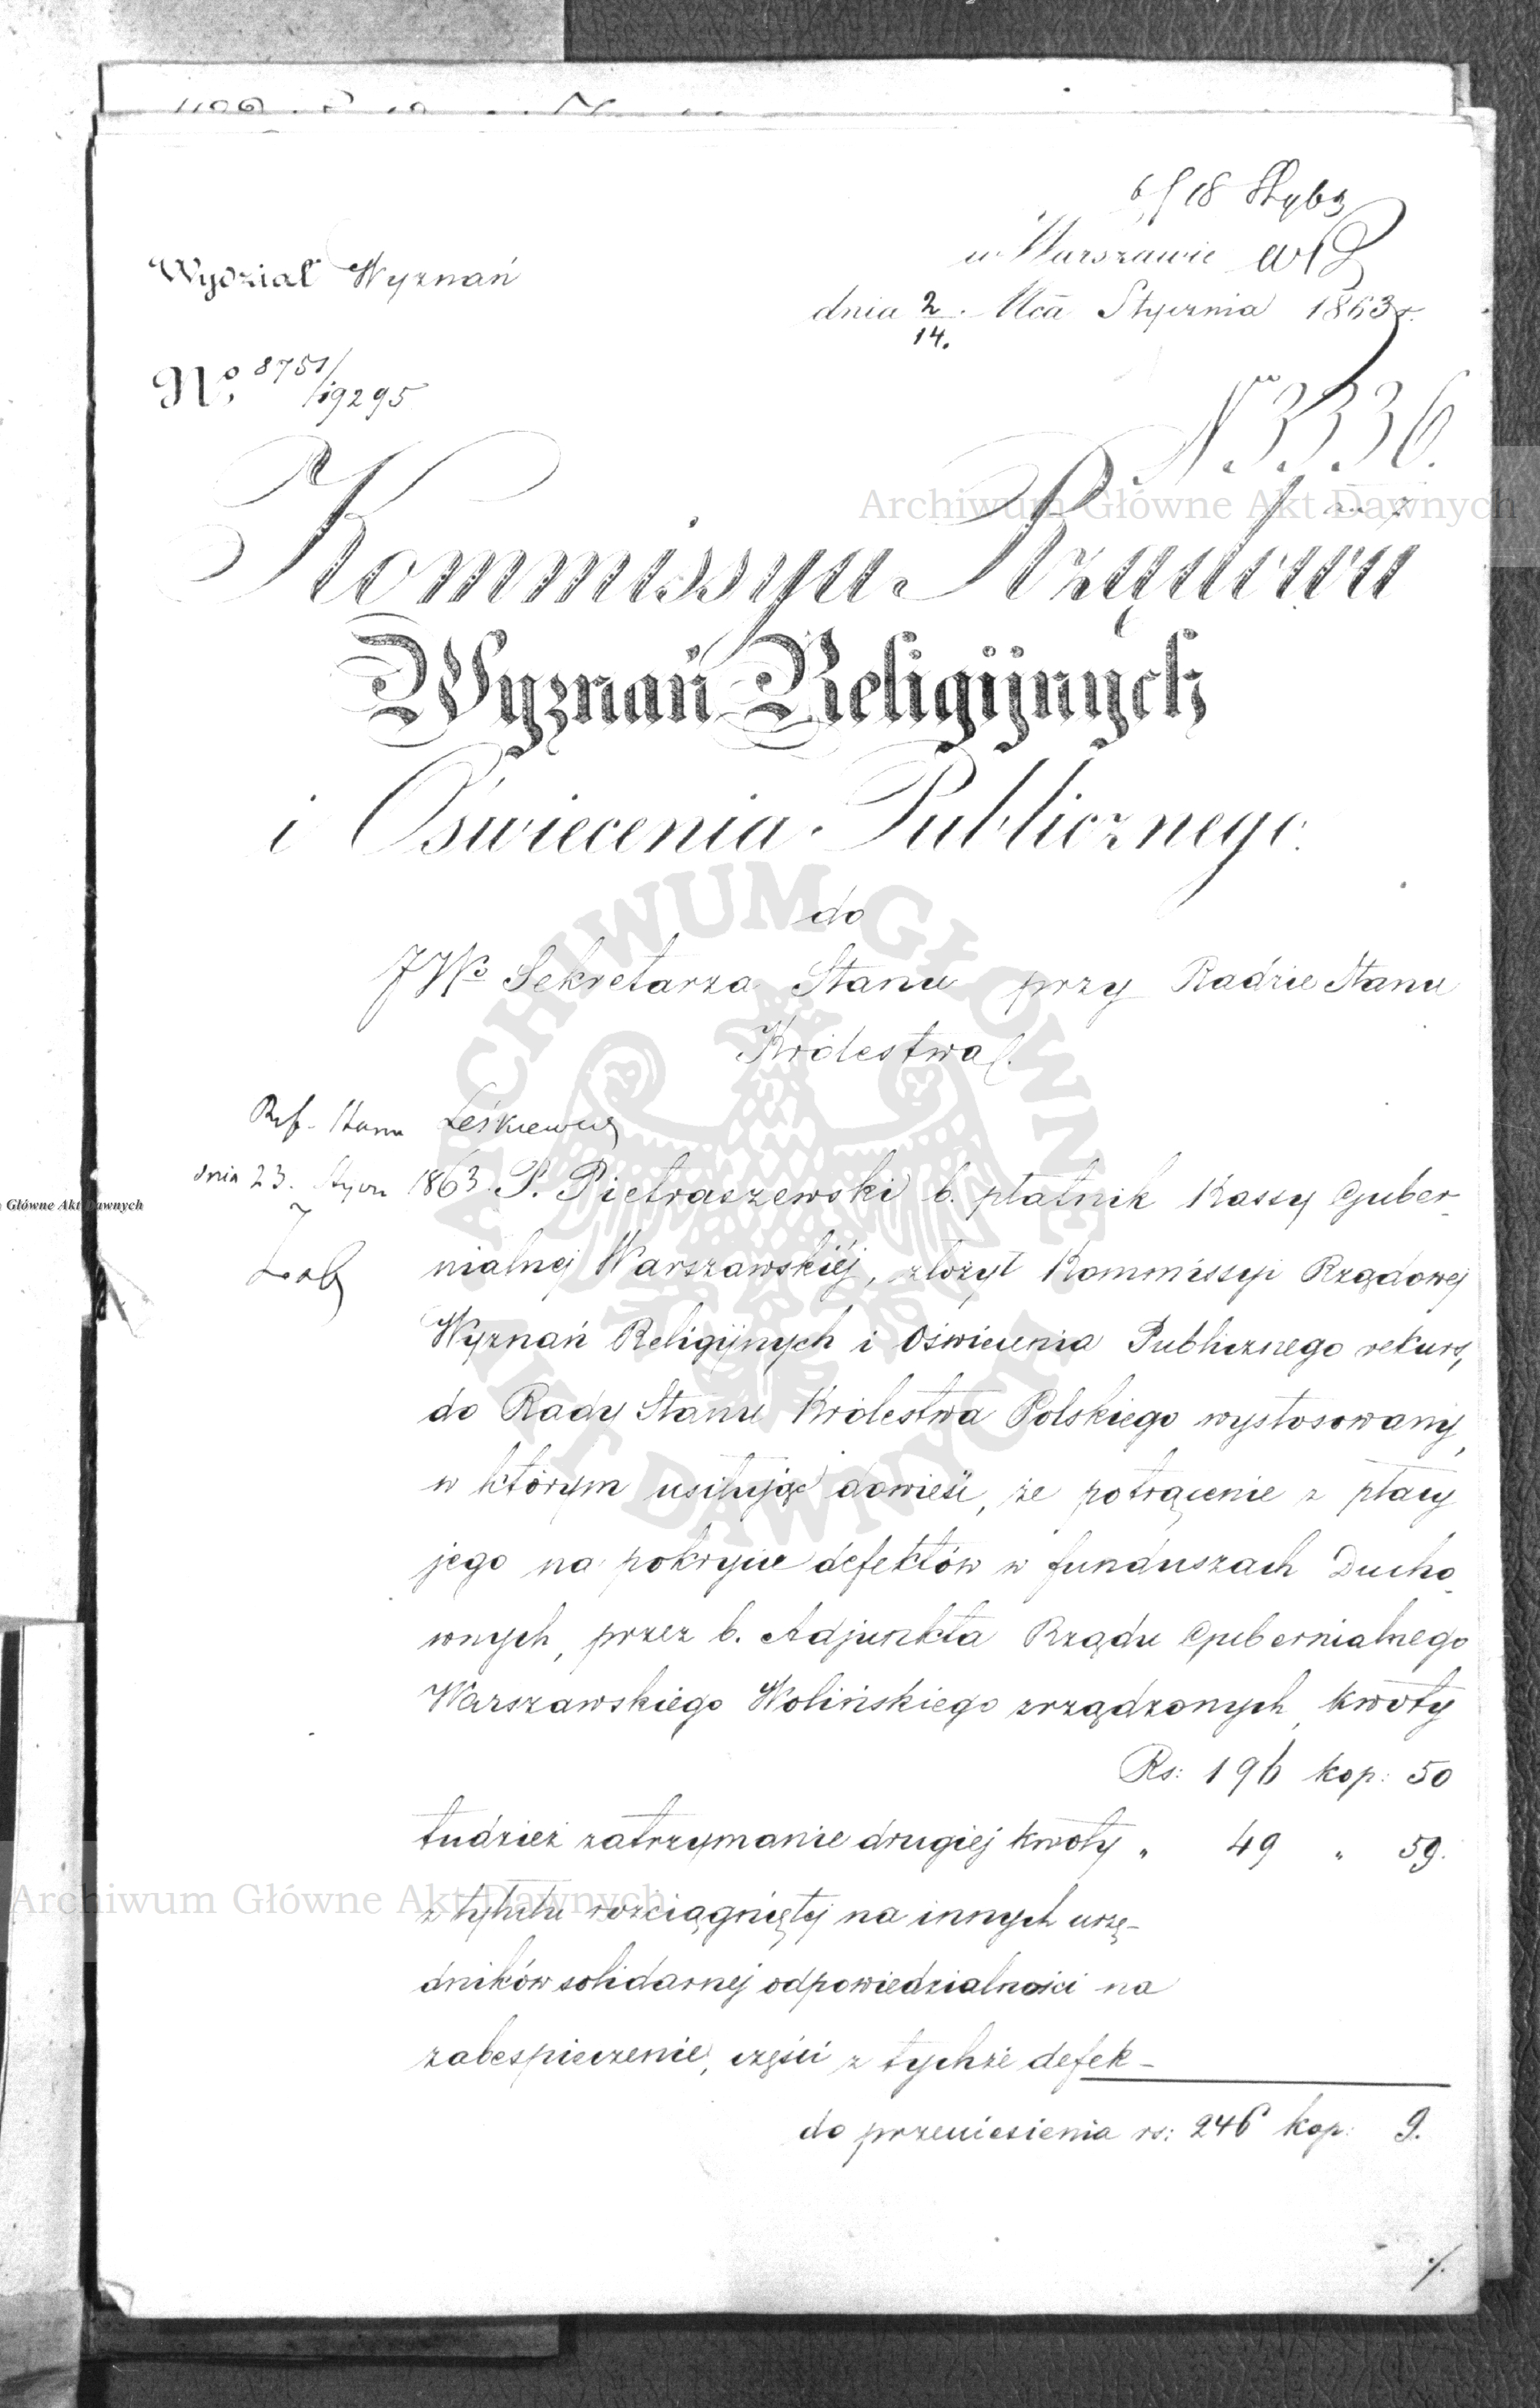 6/18 Stycz
w Warszawie
Wydział Wyznań
dnia 2/14. Mca Stycznia 1863 r.
No. 8751/19295
N 3336.
Kommissya Rządowa
Wyznań Religijnych
i Oświecenia Publicznego.
do
JWo Sekretarza Stanu przy Radzie Stanu
Królestwa
Ref. Stanu Leśkiewicz
dnia 23. Stycz 1863.
P. Pietraszewski b. płatnik Kassy Guber-
nialnej Warszawskiéj, złożył Kommissyi Rządowej
Wyznań Religijnych i Oświecenia Publicznego rekurs,
do Rady Stanu Królestwa Polskiego wystosowany,
w którym usiłując dowieść, że potrącenie z płacy
jego na pokrycie defektów w funduszach Ducho-
wnych, przez b. Adjunkta Rządu Gubernialnego
Warszawskiego Wolińskiego zrządzonych, kwoty
Rs: 196 kop: 50
tudzież zatrzymanie drugiej kwoty " 49 " 59.
z tytułu rozciągniętej na innych urzę-
dników solidarnej odpowiedzialności na
zabespieczenie, części z tychże defek-
do przeniesienia rs: 246 kop: 9.
./.
Archiwum Główne Akt Dawnych
ARCHIWUM GŁÓWNE AKT DAWNYCH
Główne Akt Dawnych
Archiwum Główne Akt Dawnych